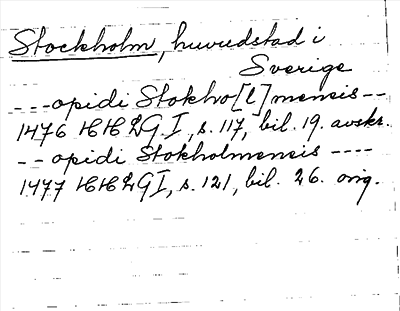 Stockholm, huvudstad i
Sverige
---opidi Stokho[l]mensis--
1476 HH2GI, s. 117, bil. 19. avskr.
--opidi Stokholmensis----
1477 HH2GI, s. 121, bil. 26. orig.